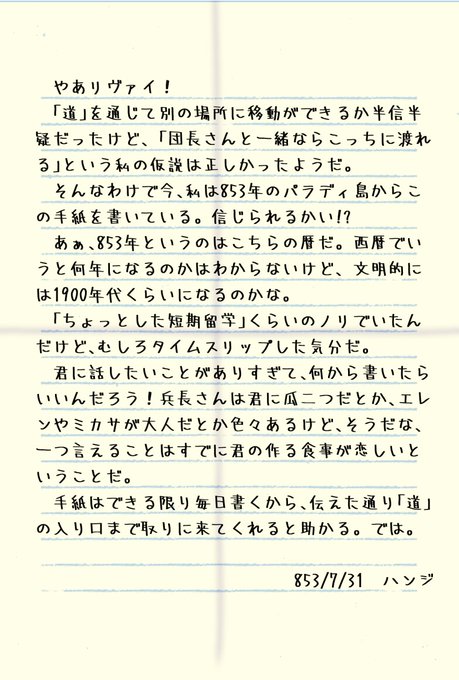 やあリヴァイ!
「道」を通じて別の場所に移動ができるか半信半
疑だったけど、「団長さんと一緒ならこっちに渡れ
る」という私の仮説は正しかったようだ。
そんなわけで今、私は853年のパラディ島からこ
の手紙を書いている。信じられるかい!?
あぁ、853年というのはこちらの暦だ。西暦でい
うと何年になるのかはわからないけど、文明的に
は1900年代くらいになるのかな。
「ちょっとした短期留学」くらいのノリでいたん
だけど、むしろタイムスリップした気分だ。
君に話したいことがありすぎて、何から書いたら
いいんだろう!兵長さんは君に瓜二つだとか、エレ
ンやミカサが大人だとか色々あるけど、そうだな、
一つ言えることはすでに君の作る食事が恋しいと
いうことだ。
手紙はできる限り毎日書くから、伝えた通り「道」
の入り口まで取りに来てくれると助かる。では。
853/7/31 ハンジ